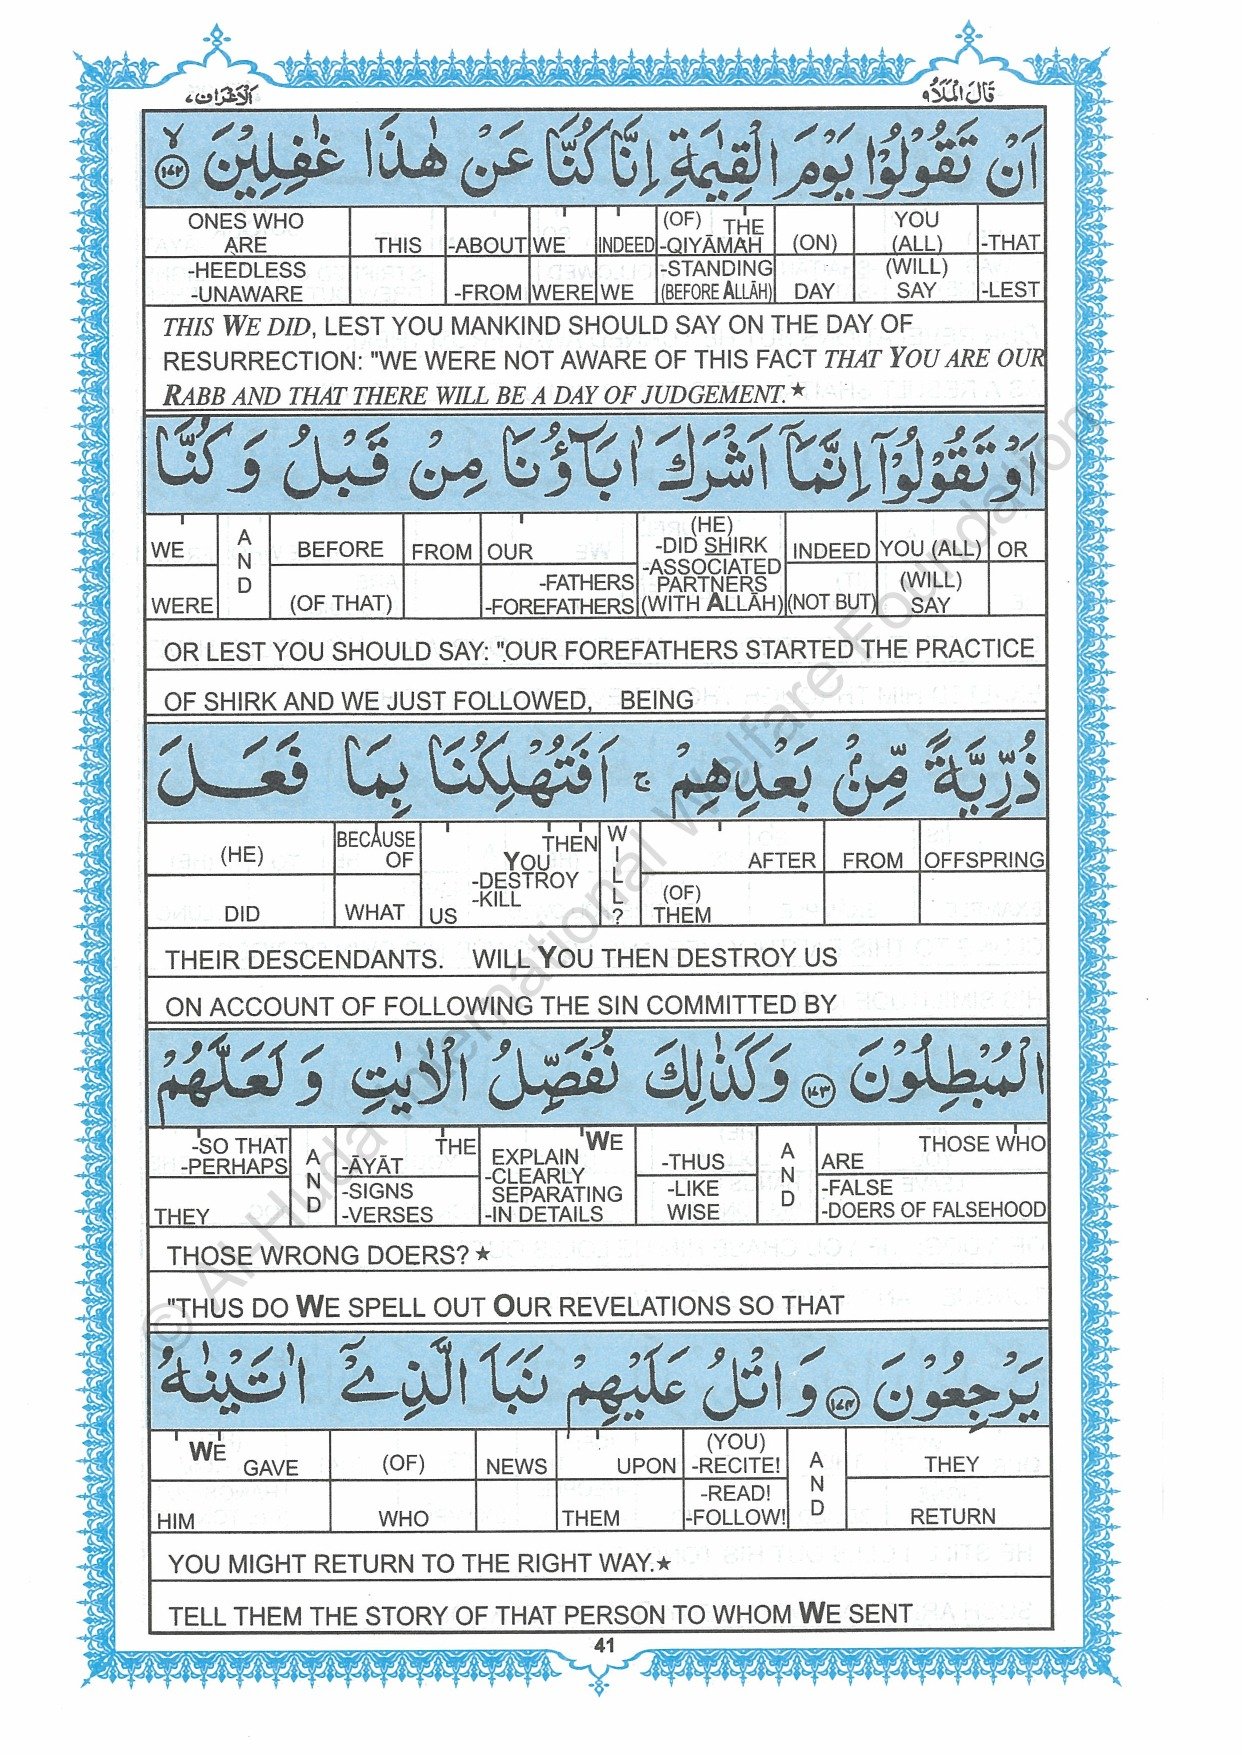 الاعراف ٧
قال الملأ ٩
اَنْ تَقُوْلُوْا يَوْمَ الْقِيٰمَةِ اِنَّا كُنَّا عَنْ هٰذَا غٰفِلِيْنَ ﴿١٧٢﴾ لا
ONES WHO ARE | THIS | -ABOUT | WE | INDEED | (OF) THE -QIYĀMAH | (ON) | YOU (ALL) | -THAT
-HEEDLESS -UNAWARE | -FROM | WERE | WE | -STANDING (BEFORE ALLĀH) | DAY | (WILL) SAY | -LEST
THIS WE DID, LEST YOU MANKIND SHOULD SAY ON THE DAY OF
RESURRECTION: "WE WERE NOT AWARE OF THIS FACT THAT YOU ARE OUR
RABB AND THAT THERE WILL BE A DAY OF JUDGEMENT.★
اَوْ تَقُوْلُوْٓا اِنَّمَآ اَشْرَكَ اٰبَآؤُنَا مِنْ قَبْلُ وَ كُنَّا
WE | AND | BEFORE | FROM | OUR | (HE) -DID SHIRK -ASSOCIATED | INDEED | YOU (ALL) | OR
WERE | (OF THAT) | -FATHERS -FOREFATHERS | PARTNERS (WITH ALLĀH) | (NOT BUT) | (WILL) SAY
OR LEST YOU SHOULD SAY: "OUR FOREFATHERS STARTED THE PRACTICE
OF SHIRK AND WE JUST FOLLOWED, BEING
ذُرِّيَّةً مِّنْۢ بَعْدِهِمْ ج اَفَتُهْلِكُنَا بِمَا فَعَلَ
(HE) | BECAUSE OF | THEN YOU -DESTROY -KILL | WILL? | AFTER | FROM | OFFSPRING
DID | WHAT | US | (OF) THEM
THEIR DESCENDANTS. WILL YOU THEN DESTROY US
ON ACCOUNT OF FOLLOWING THE SIN COMMITTED BY
الْمُبْطِلُوْنَ ﴿١٧٣﴾ وَ كَذٰلِكَ نُفَصِّلُ الْاٰيٰتِ وَ لَعَلَّهُمْ
-SO THAT -PERHAPS | AND | THE -ĀYĀT | WE EXPLAIN -CLEARLY | -THUS | AND | THOSE WHO ARE
THEY | -SIGNS -VERSES | SEPARATING -IN DETAILS | -LIKE WISE | -FALSE -DOERS OF FALSEHOOD
THOSE WRONG DOERS?★
"THUS DO WE SPELL OUT OUR REVELATIONS SO THAT
يَرْجِعُوْنَ ﴿١٧٤﴾ وَ اتْلُ عَلَيْهِمْ نَبَاَ الَّذِيْٓ اٰتَيْنٰهُ
WE GAVE | (OF) | NEWS | UPON | (YOU) -RECITE! | AND | THEY
HIM | WHO | THEM | -READ! -FOLLOW! | RETURN
YOU MIGHT RETURN TO THE RIGHT WAY.★
TELL THEM THE STORY OF THAT PERSON TO WHOM WE SENT
41
© Al-Huda International Welfare Foundation